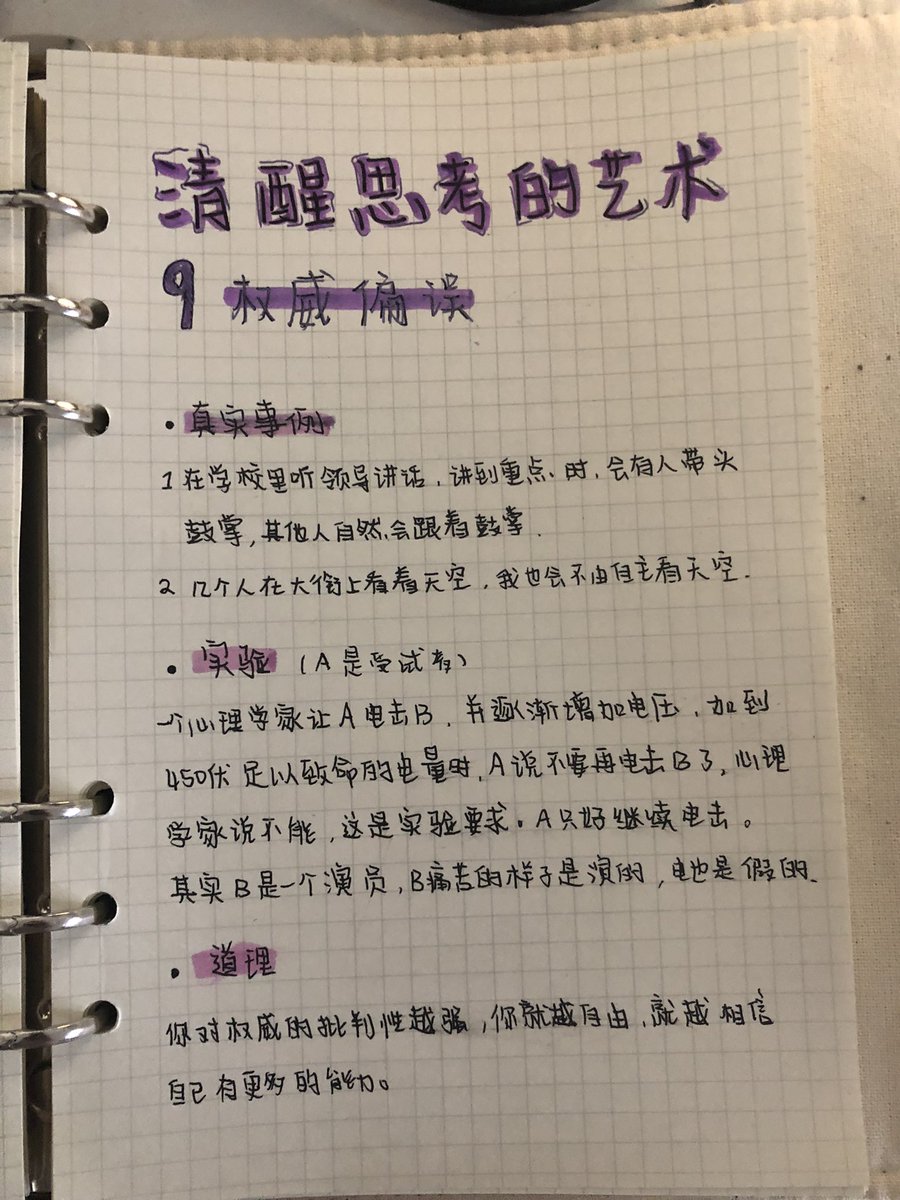 清醒思考的艺术
9 权威偏误
• 真实事例
1 在学校里听领导讲话，讲到重点时，会有人带头
鼓掌，其他人自然会跟着鼓掌.
2 几个人在大街上看着天空，我也会不由自主看天空.
• 实验（A是受试者）
一个心理学家让A电击B，并逐渐增加电压，加到
450伏足以致命的电量时，A说不要再电击B了，心理
学家说不能，这是实验要求。A只好继续电击。
其实B是一个演员，B痛苦的样子是演的，电也是假的.
• 道理
你对权威的批判性越强，你就越自由，就越相信
自己有更多的能力。